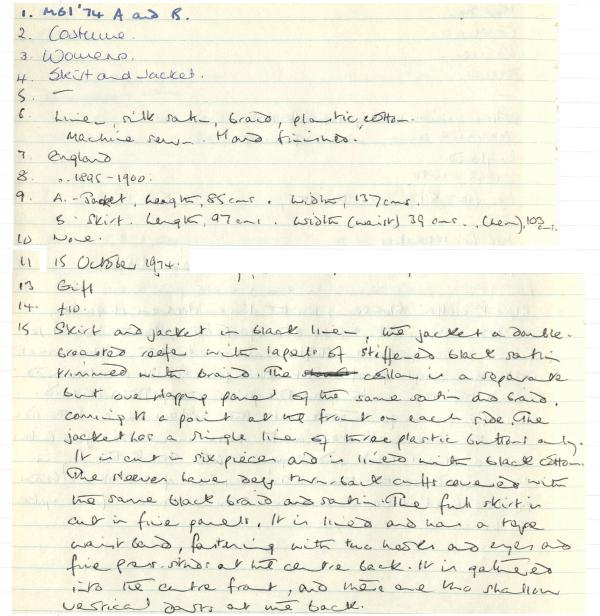 1. M61'74 A and B.
2. Costume.
3. Womens.
4. Skirt and Jacket.
5. —
6. Linen, silk satin, braid, plastic, cotton.
Machine sewn. Hand finished.
7. England
8. c. 1895-1900.
9. A. - Jacket, Length, 85 cms. Width, 137 cms.
B. Skirt. Length, 97 cms. Width (waist) 39 cms. (hem), 103 cms.
10 None.
11 15 October 1974.
13 Gift
14. £10.
15 Skirt and jacket in black linen, the jacket a double-
breasted reefer with lapels of stiffened black satin
trimmed with braid. The collar is a separate
but overlapping panel of the same satin and braid,
coming to a point at the front on each side. The
jacket has a single line of three plastic buttons only.
It is cut in six pieces and is lined with black cotton.
The sleeves have deep turn-back cuffs covered with
the same black braid and satin. The full skirt is
cut in five panels. It is lined and has a tape
waist band, fastening with two hooks and eyes and
five press-studs at the centre back. It is gathered
into the centre front, and there are two shallow
vertical darts at the back.